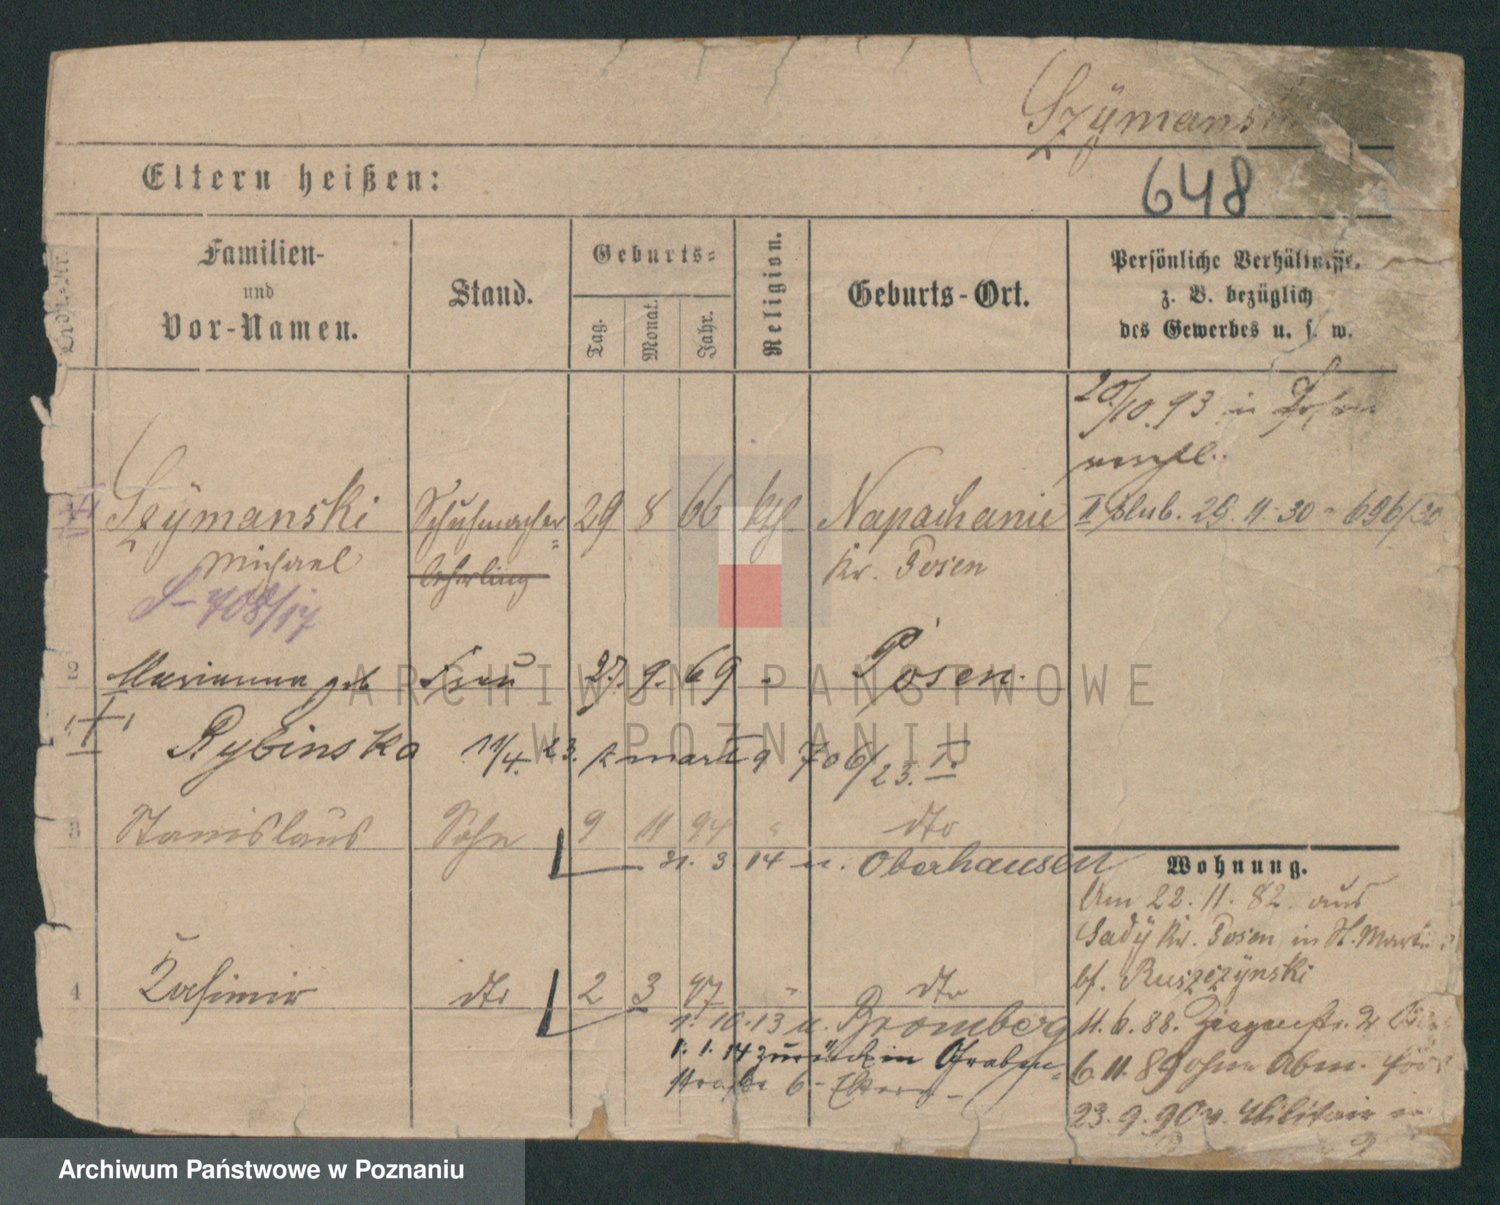 Szÿmanski
Eltern heißen:
648
Familien-
und
Vor-Namen.
Stand.
Geburts-
Tag.
Monat.
Jahr.
Religion.
Geburts-Ort.
Persönliche Verhältnisse.
z. B. bezüglich
des Gewerbes u. s. w.
20/10. 93 in Posen
Szÿmanski Schuhmacher= 29 8 66 kth Napachanie
II 29. 11. 30 - 696/30
Michael lehrling Kr. Posen
S- 708/17
2 Marianna geb Frau 27. 9. 69 Posen.
Rybinska 11/4. 23. 706/23. I.
3 Stanislaus Sohn 9 11 94 " dto
21. 3. 14 n. Oberhausen
Wohnung.
Am 22. 11. 82. aus
Sadÿ Kr. Posen, in St. Martin
bf. Ruszczÿnski
4 Kasimir dto 2 3 97 " dto
1. 10. 13 n. Bromberg
11. 6. 88. Ziegenstr.
1. 1. 14 zurück in Graben=
straße 6 - Eltern -
6. 11. 89 ohne Abm.
23. 9. 90 v. Militair in
ARCHIWUM PAŃSTWOWE
W POZNANIU
Archiwum Państwowe w Poznaniu